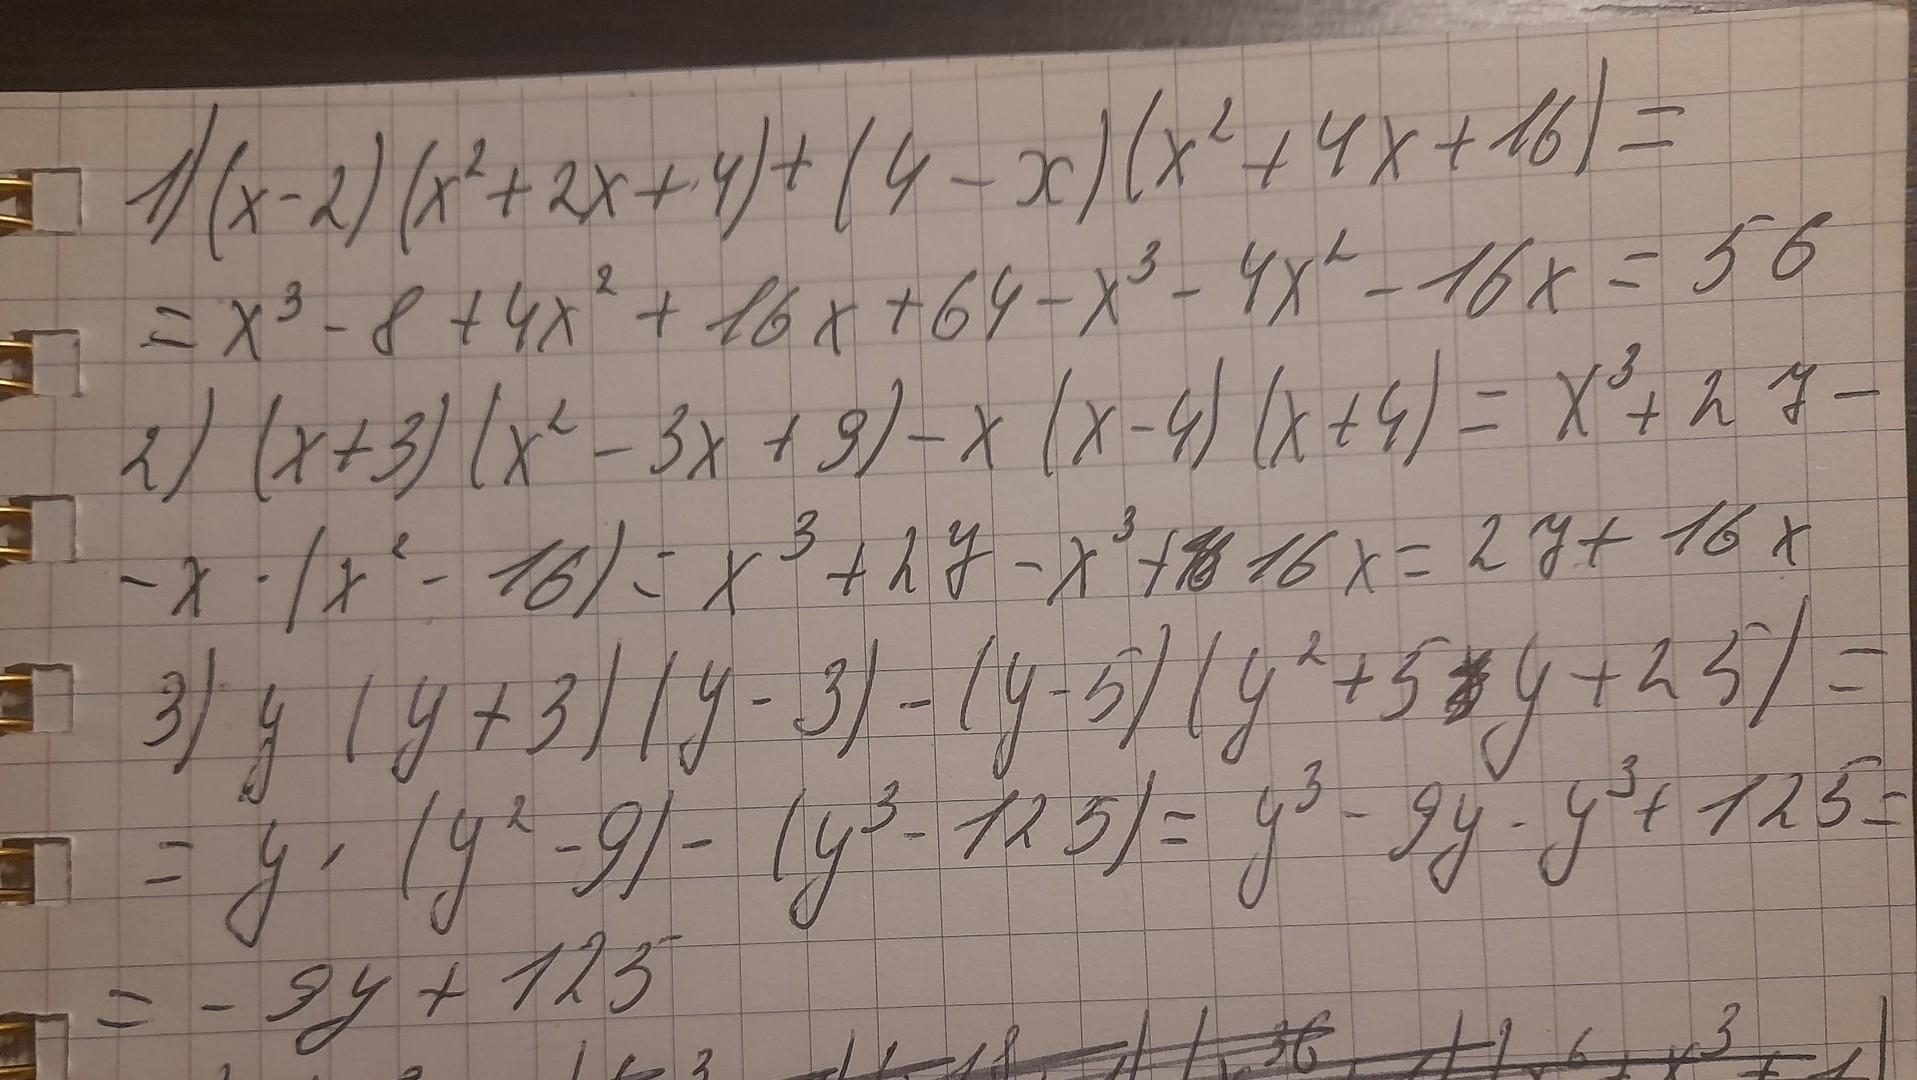 1) (x-2)(x²+2x+4)+(4-x)(x²+4x+16)=
=x³-8+4x²+16x+64-x³-4x²-16x=56
2) (x+3)(x²-3x+9)-x(x-4)(x+4)=x³+27-
-x·(x²-16)=x³+27-x³+16x=27+16x
3) y(y+3)(y-3)-(y-5)(y²+5y+25)=
=y·(y²-9)-(y³-125)=y³-9y-y³+125=
=-9y+125